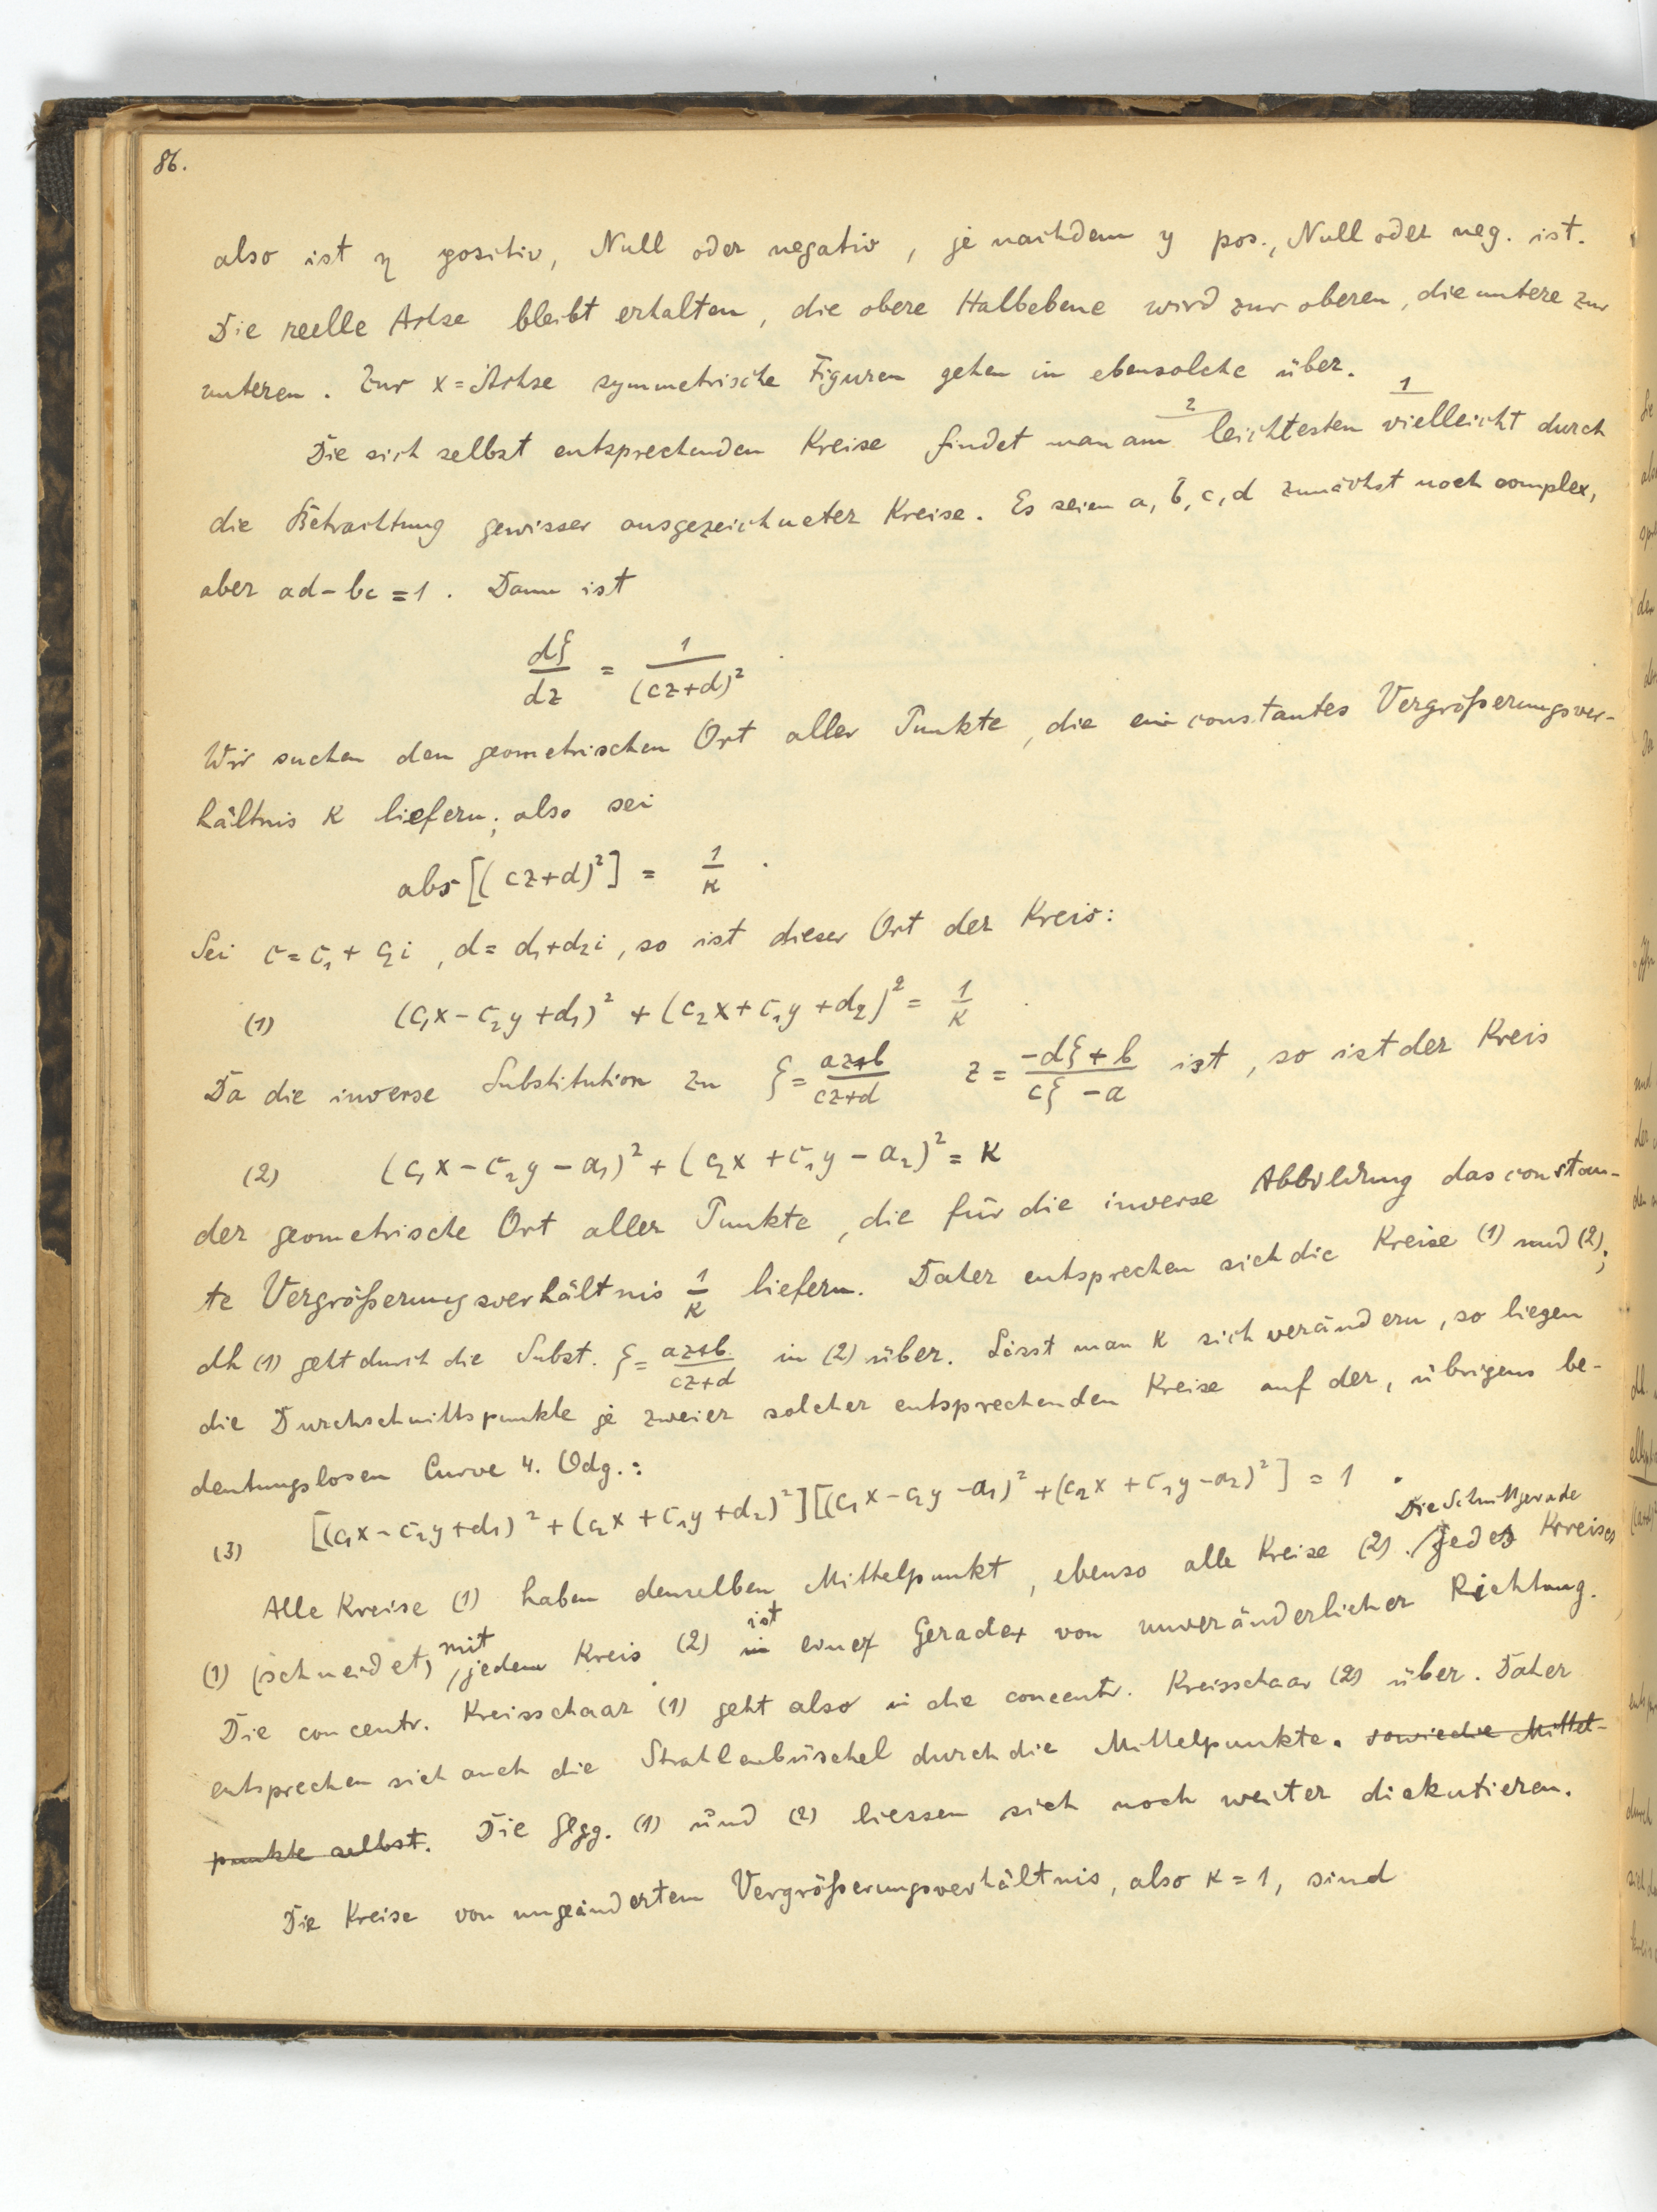 86.
also ist η positiv, Null oder negativ, je nachdem y pos., Null oder neg. ist.
Die reelle Achse bleibt erhalten, die obere Halbebene wird zur oberen, die untere zur
unteren. Zur x=Achse symmetrische Figuren gehen in ebensolche über.
2 1
Die sich selbst entsprechenden Kreise findet man am leichtesten vielleicht durch
die Betrachtung gewisser ausgezeichneter Kreise. Es seien a, b, c, d zunächst noch complex,
aber ad-bc=1. Dann ist
dξ/dz = 1/(cz+d)².
Wir suchen den geometrischen Ort aller Punkte, die ein constantes Vergrößerungsver-
hältnis K liefern; also sei
abs[(cz+d)²] = 1/K.
Sei c=c₁+c₂i, d=d₁+d₂i, so ist dieser Ort der Kreis:
(1) (c₁x-c₂y+d₁)² + (c₂x+c₁y+d₂)² = 1/K.
Da die inverse Substitution zu ξ=(az+b)/(cz+d) z=(-dξ+b)/(cξ-a) ist, so ist der Kreis
(2) (c₁x-c₂y-a₁)² + (c₂x+c₁y-a₂)² = K
der geometrische Ort aller Punkte, die für die inverse Abbildung das constan-
te Vergrößerungsverhältnis 1/K liefern. Daher entsprechen sich die Kreise (1) und (2);
dh (1) geht durch die Subst. ξ=(az+b)/(cz+d) in (2) über. Lässt man K sich verändern, so liegen
die Durchschnittspunkte je zweier solcher entsprechenden Kreise auf der, übrigens be-
deutungslosen Curve 4. Odg.:
(3) [(c₁x-c₂y+d₁)²+(c₂x+c₁y+d₂)²][(c₁x-c₂y-a₁)²+(c₂x+c₁y-a₂)²] = 1.
Die Schnittgerade
Alle Kreise (1) haben denselben Mittelpunkt, ebenso alle Kreise (2). Jedes Kreises
mit ist
(1) (schneidet) jedem Kreis (2) in einer Gerade von unveränderlicher Richtung.
Die concentr. Kreisschaar (1) geht also in die concentr. Kreisschaar (2) über. Daher
entsprechen sich auch die Strahlenbüschel durch die Mittelpunkte. sowie die Mittel-
punkte selbst. Die Glgg. (1) und (2) liessen sich noch weiter diskutieren.
Die Kreise von ungeändertem Vergrößerungsverhältnis, also K=1, sind